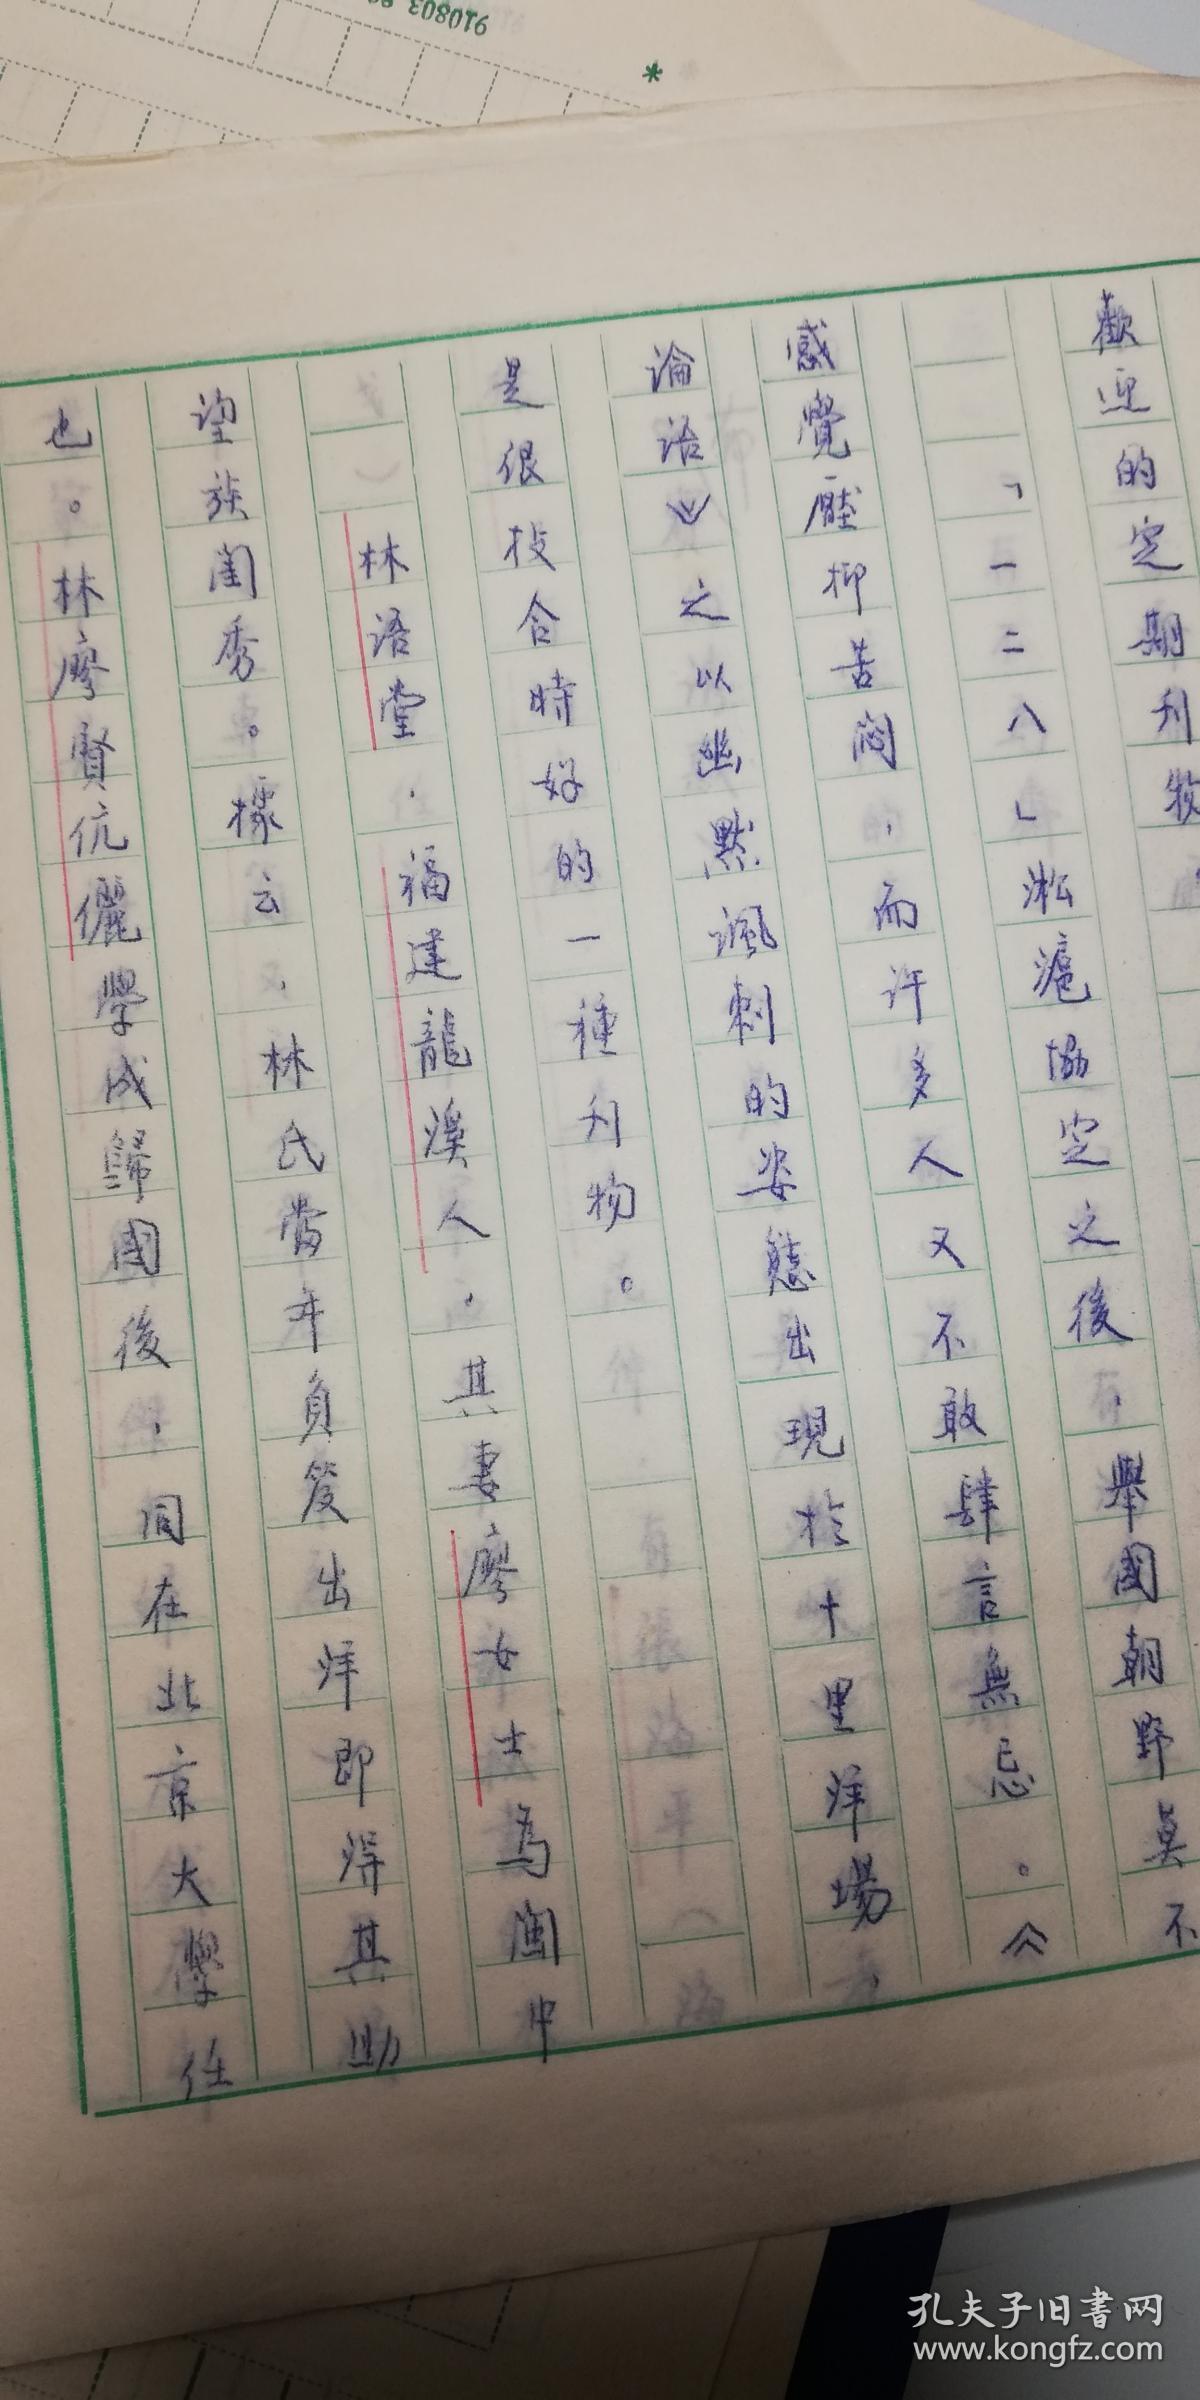 歡迎的定期刊物
「一二八」淞滬協定之後，舉國朝野莫不
感覺壓抑苦悶，而許多人又不敢肆言無忌。《
論语》之以幽默諷刺的姿態出現於十里洋場，
是很投合時好的一種刊物。
林语堂，福建龍溪人，其妻廖女士為閩中
望族閨秀。據云，林氏當年負笈出洋即得其助
也。林廖賢伉儷學成歸國後，同在北京大學任
910803
*
孔夫子旧书网
www.kongfz.com